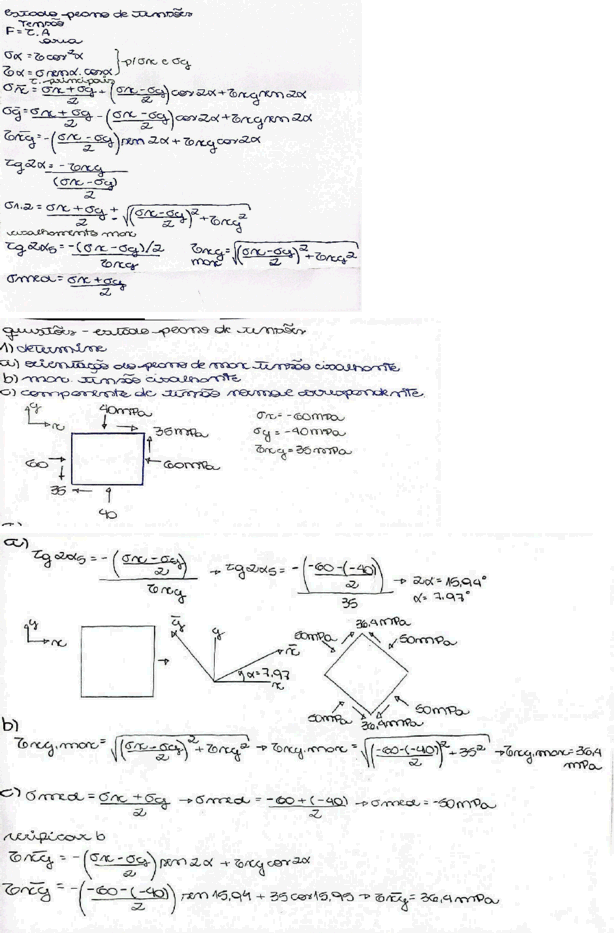 estado plano de tensões
Tensão
F = τ.A
área
σα = σcos²α
τα = σsenα.cosα } p/σx e σy
τ. principais
σx̄ = (σx+σy)/2 + ((σx-σy)/2)cos2α + τxysen2α
σȳ = (σx+σy)/2 - ((σx-σy)/2)cos2α + τxysen2α
τx̄ȳ = -((σx-σy)/2)sen2α + τxycos2α
τg2α = -τxy/((σx-σy)/2)
σ1.2 = (σx+σy)/2 ± √(((σx-σy)/2)² + τxy²)
cisalhamento max
τg2αs = -(σx-σy)/2 / τxy τxy max = √(((σx-σy)/2)² + τxy²)
σmed = (σx+σy)/2
questões - estado plano de tensões
1) determine
a) orientação do plano de max tensão cisalhante
b) max tensão cisalhante
c) componente de tensão normal correspondente
y 40mPa σx = -60mPa
x 35mPa σy = -40mPa
60 60mPa τxy = 35mPa
35
40
a)
τg2αs = -((σx-σy)/2)/τxy → τg2αs = -((-60-(-40))/2)/35 → 2α = 15,94°
α = 7.97°
y x ȳ y x̄ α=7.97 x 50mPa 36.4mPa 50mPa
50mPa 36.4mPa 50mPa
b)
τxy.max = √(((σx-σy)/2)² + τxy²) → τxy.max = √(((-60-(-40))/2)² + 35²) → τxy.max = 36,4 mPa
c) σmed = (σx+σy)/2 → σmed = (-60+(-40))/2 → σmed = -50mPa
verificar b
τx̄ȳ = -((σx-σy)/2)sen2α + τxycos2α
τx̄ȳ = -((-60-(-40))/2)sen15,94 + 35cos15,95 → τx̄ȳ = 36,4mPa